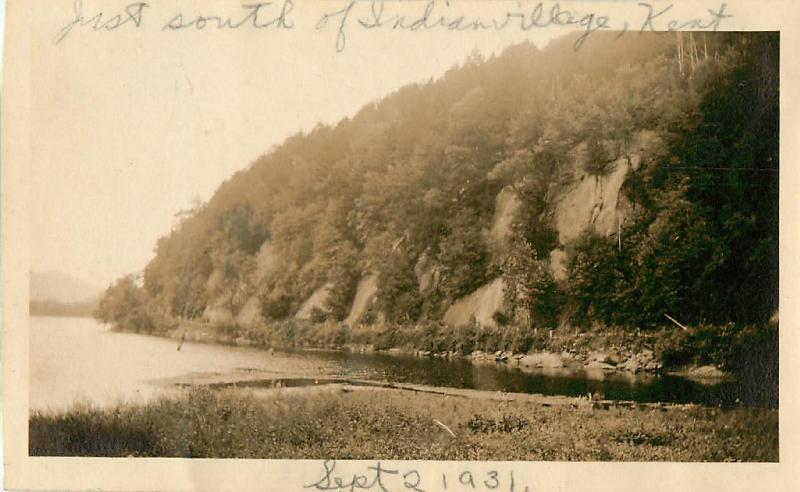 Just south of Indianvillage, Kent
Sept 2 1931.